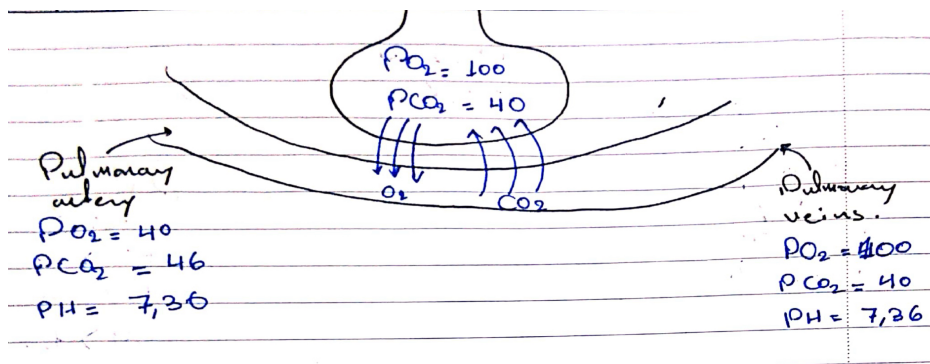 PO₂ = 100
PCO₂ = 40
O₂
CO₂
Pulmonary
artery
PO₂ = 40
PCO₂ = 46
PH = 7,36
Pulmonary
veins.
PO₂ = 100
PCO₂ = 40
PH = 7,36